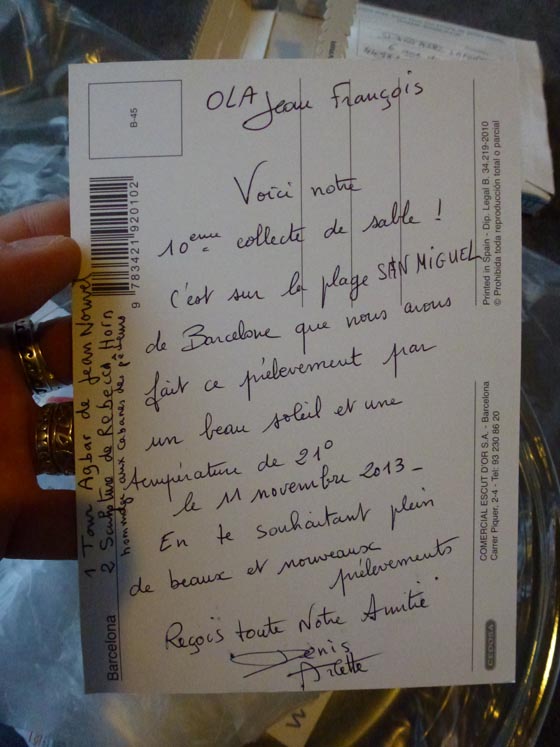 OLA Jean François
Voici notre
10eme collecte de sable !
C'est sur la plage SAN MIGUEL
de Barcelone que nous avons
fait ce prélevement par
un beau soleil et une
température de 21°
le 11 novembre 2013 -
En te souhaitant plein
de beaux et nouveaux
prélevements
Reçois toute Notre Amitié
Denis
Arlette
B-45
9 783421 920102
1 Tour Agbar de Jean Nouvel
2 Sculpture de Rebecca Horn
hommage aux cabanes des pêcheurs
Barcelona
Printed in Spain - Dip. Legal B. 34.219-2010
© Prohibida toda reproducción total o parcial
COMERCIAL ESCUT D'OR S.A. - Barcelona
Carrer Piquer, 2-4 - Tel: 93 230 86 20